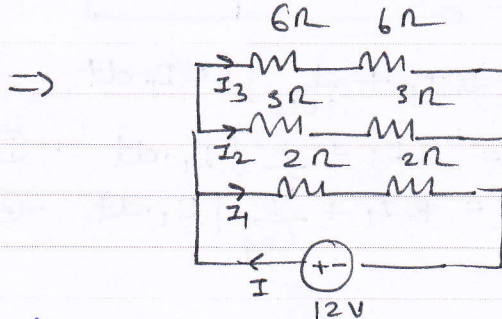 6Ω 6Ω
⇒
I3
3Ω 3Ω
I2
2Ω 2Ω
I1
+ -
I
12V